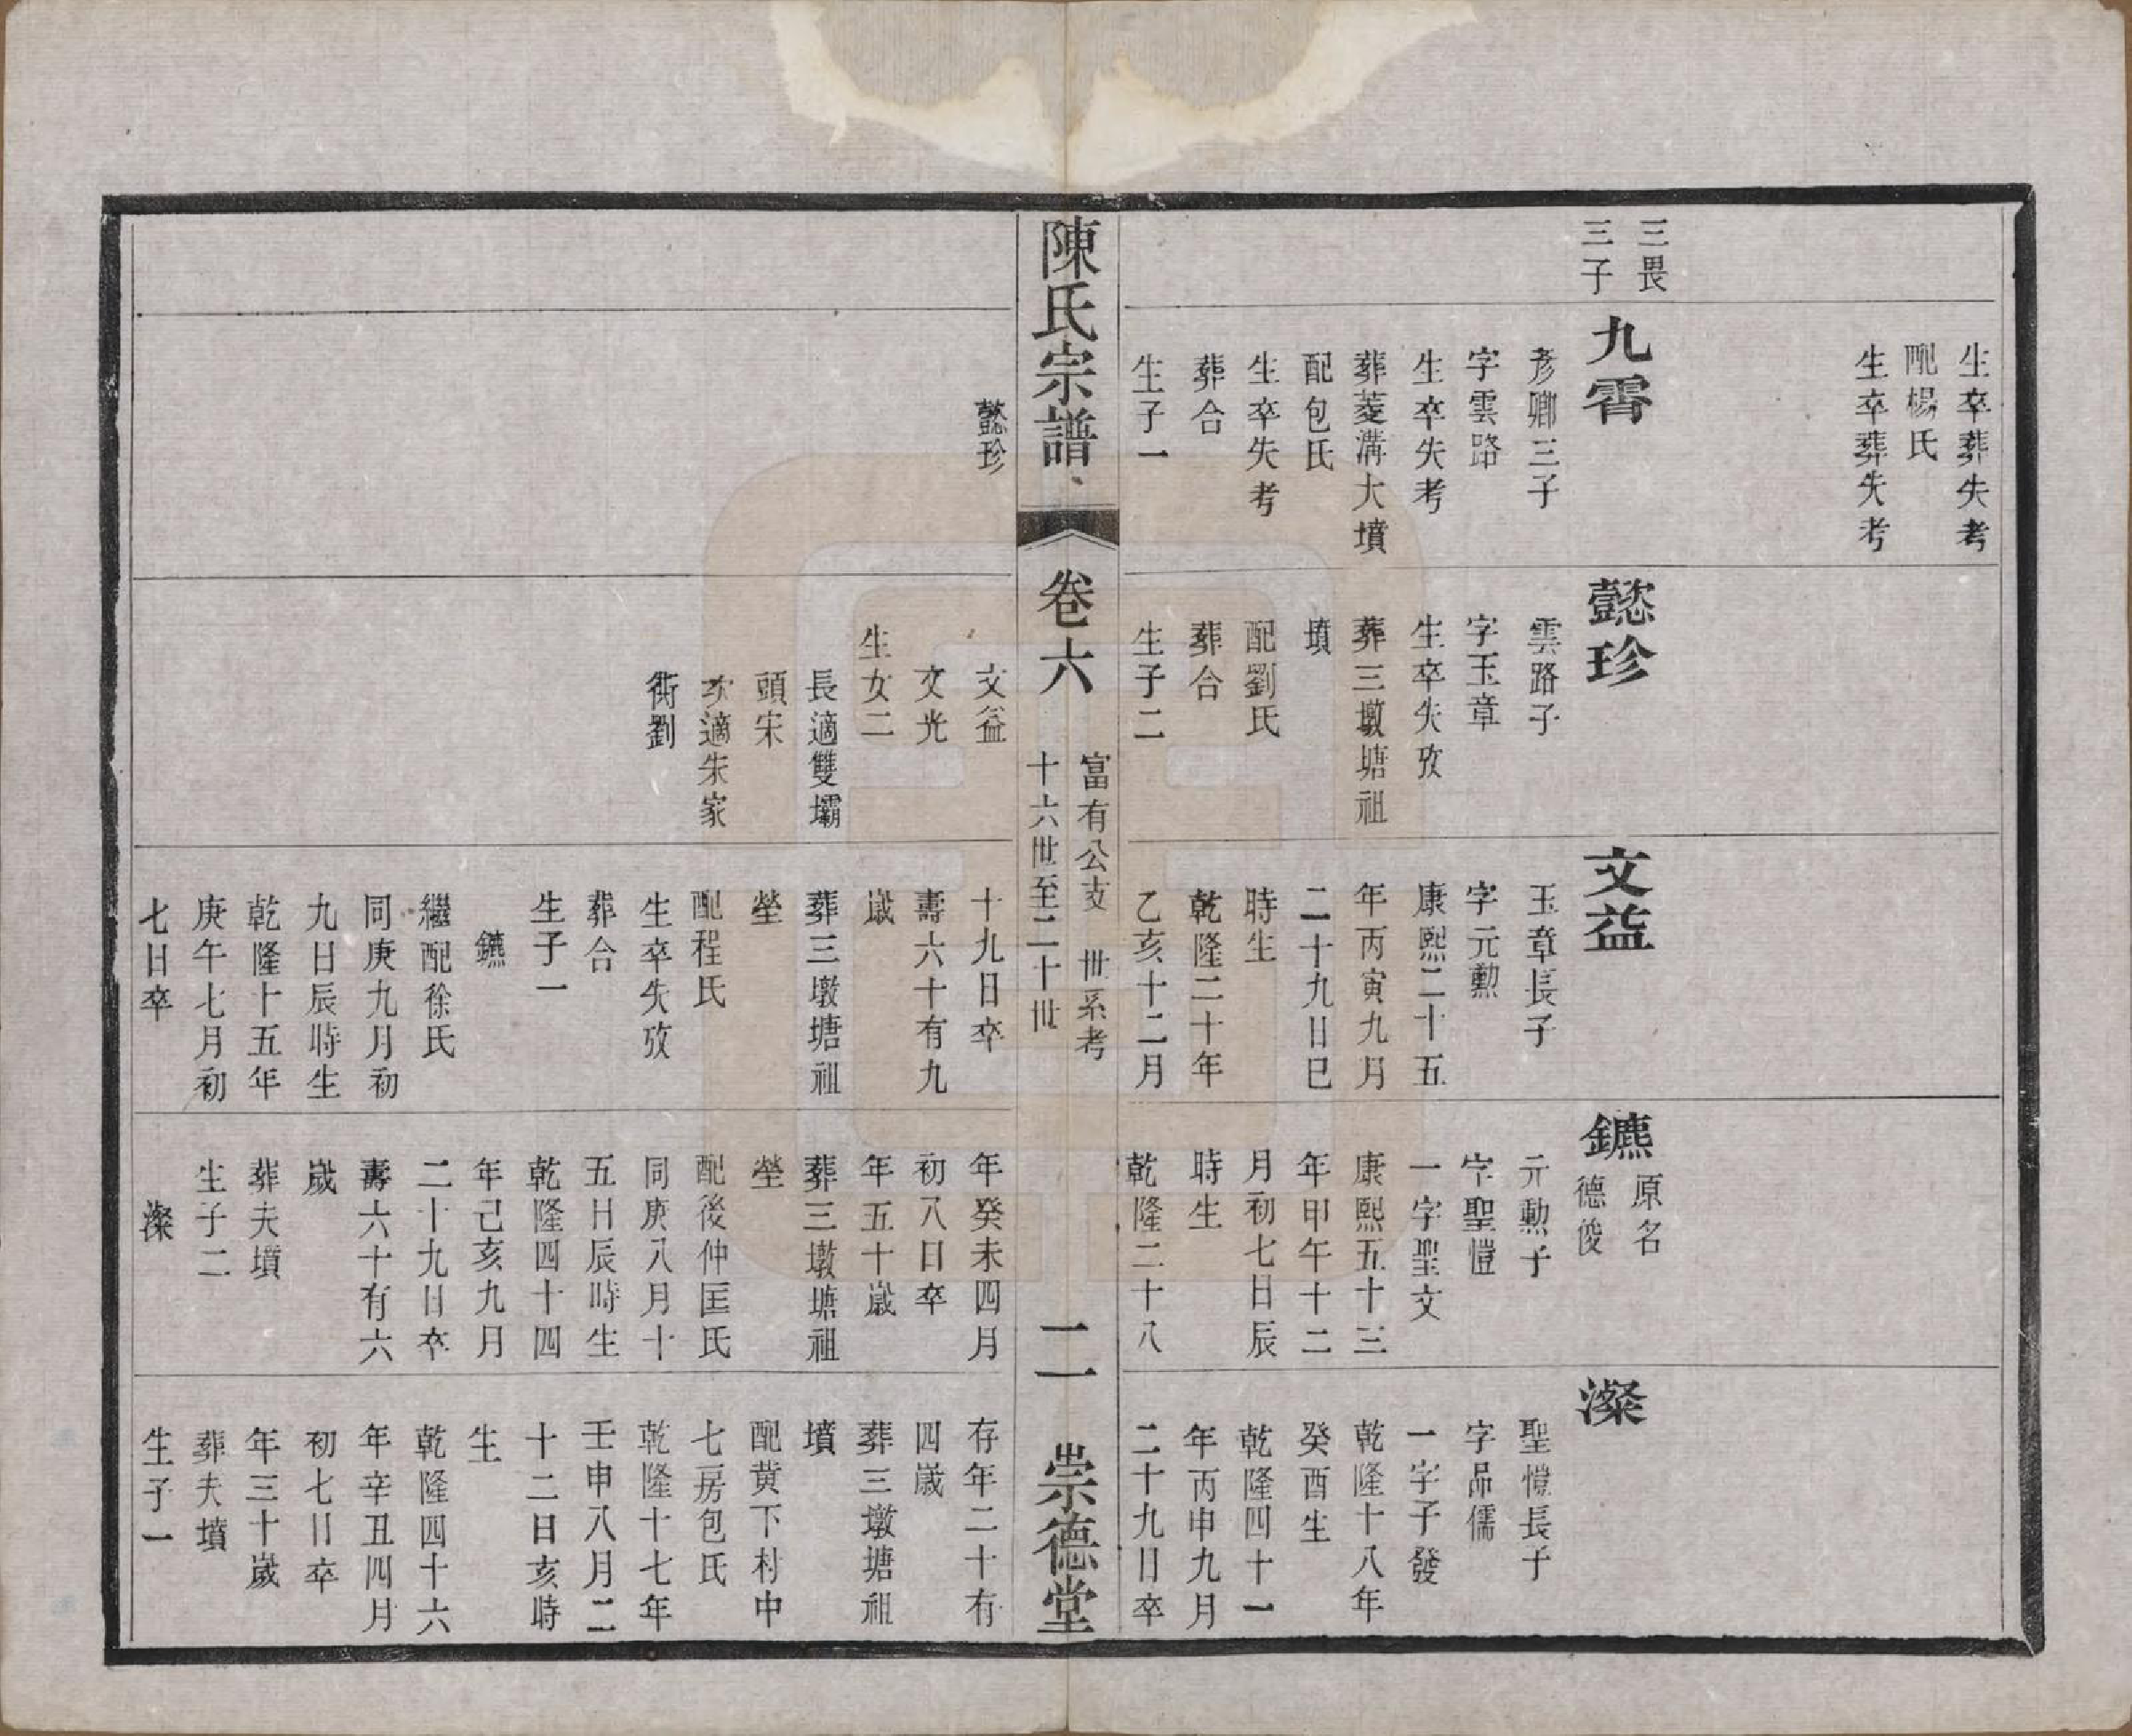 三畏
三子
生卒葬失考
配楊氏
生卒葬失考
九霄
彥卿三子
字雲路
生卒失考
葬菱溝大墳
配包氏
生卒失考
葬合
生子一
懿珍
雲路子
字玉章
生卒失攷
葬三墩塘祖
墳
配劉氏
葬合
生子二
文益
玉章長子
字元勳
康熙二十五
年丙寅九月
二十九日巳
時生
乾隆二十年
乙亥十二月
鑣
原名
德俊
元勳子
字聖愷
一字聖文
康熙五十三
年甲午十二
月初七日辰
時生
乾隆二十八
澯
聖愷長子
字品儒
一字子發
乾隆十八年
癸酉生
乾隆四十一
年丙申九月
二十九日卒
陳氏宗譜
卷六
富有公支 世系考
十六世至二十世
二
崇德堂
懿珍
文益
文光
生女二
長適雙壩
頭宋
次適朱家
衖劉
十九日卒
壽六十有九
歲
葬三墩塘祖
塋
配程氏
生卒失攷
葬合
生子一
鑣
繼配徐氏
同庚九月初
九日辰時生
乾隆十五年
庚午七月初
七日卒
年癸未四月
初八日卒
年五十歲
葬三墩塘祖
塋
配後仲匡氏
同庚八月十
五日辰時生
乾隆四十四
年己亥九月
二十九日卒
壽六十有六
歲
葬夫墳
生子二
澯
存年二十有
四歲
葬三墩塘祖
墳
配黄下村中
七房包氏
乾隆十七年
壬申八月二
十二日亥時
生
乾隆四十六
年辛丑四月
初七日卒
年三十歲
葬夫墳
生子一